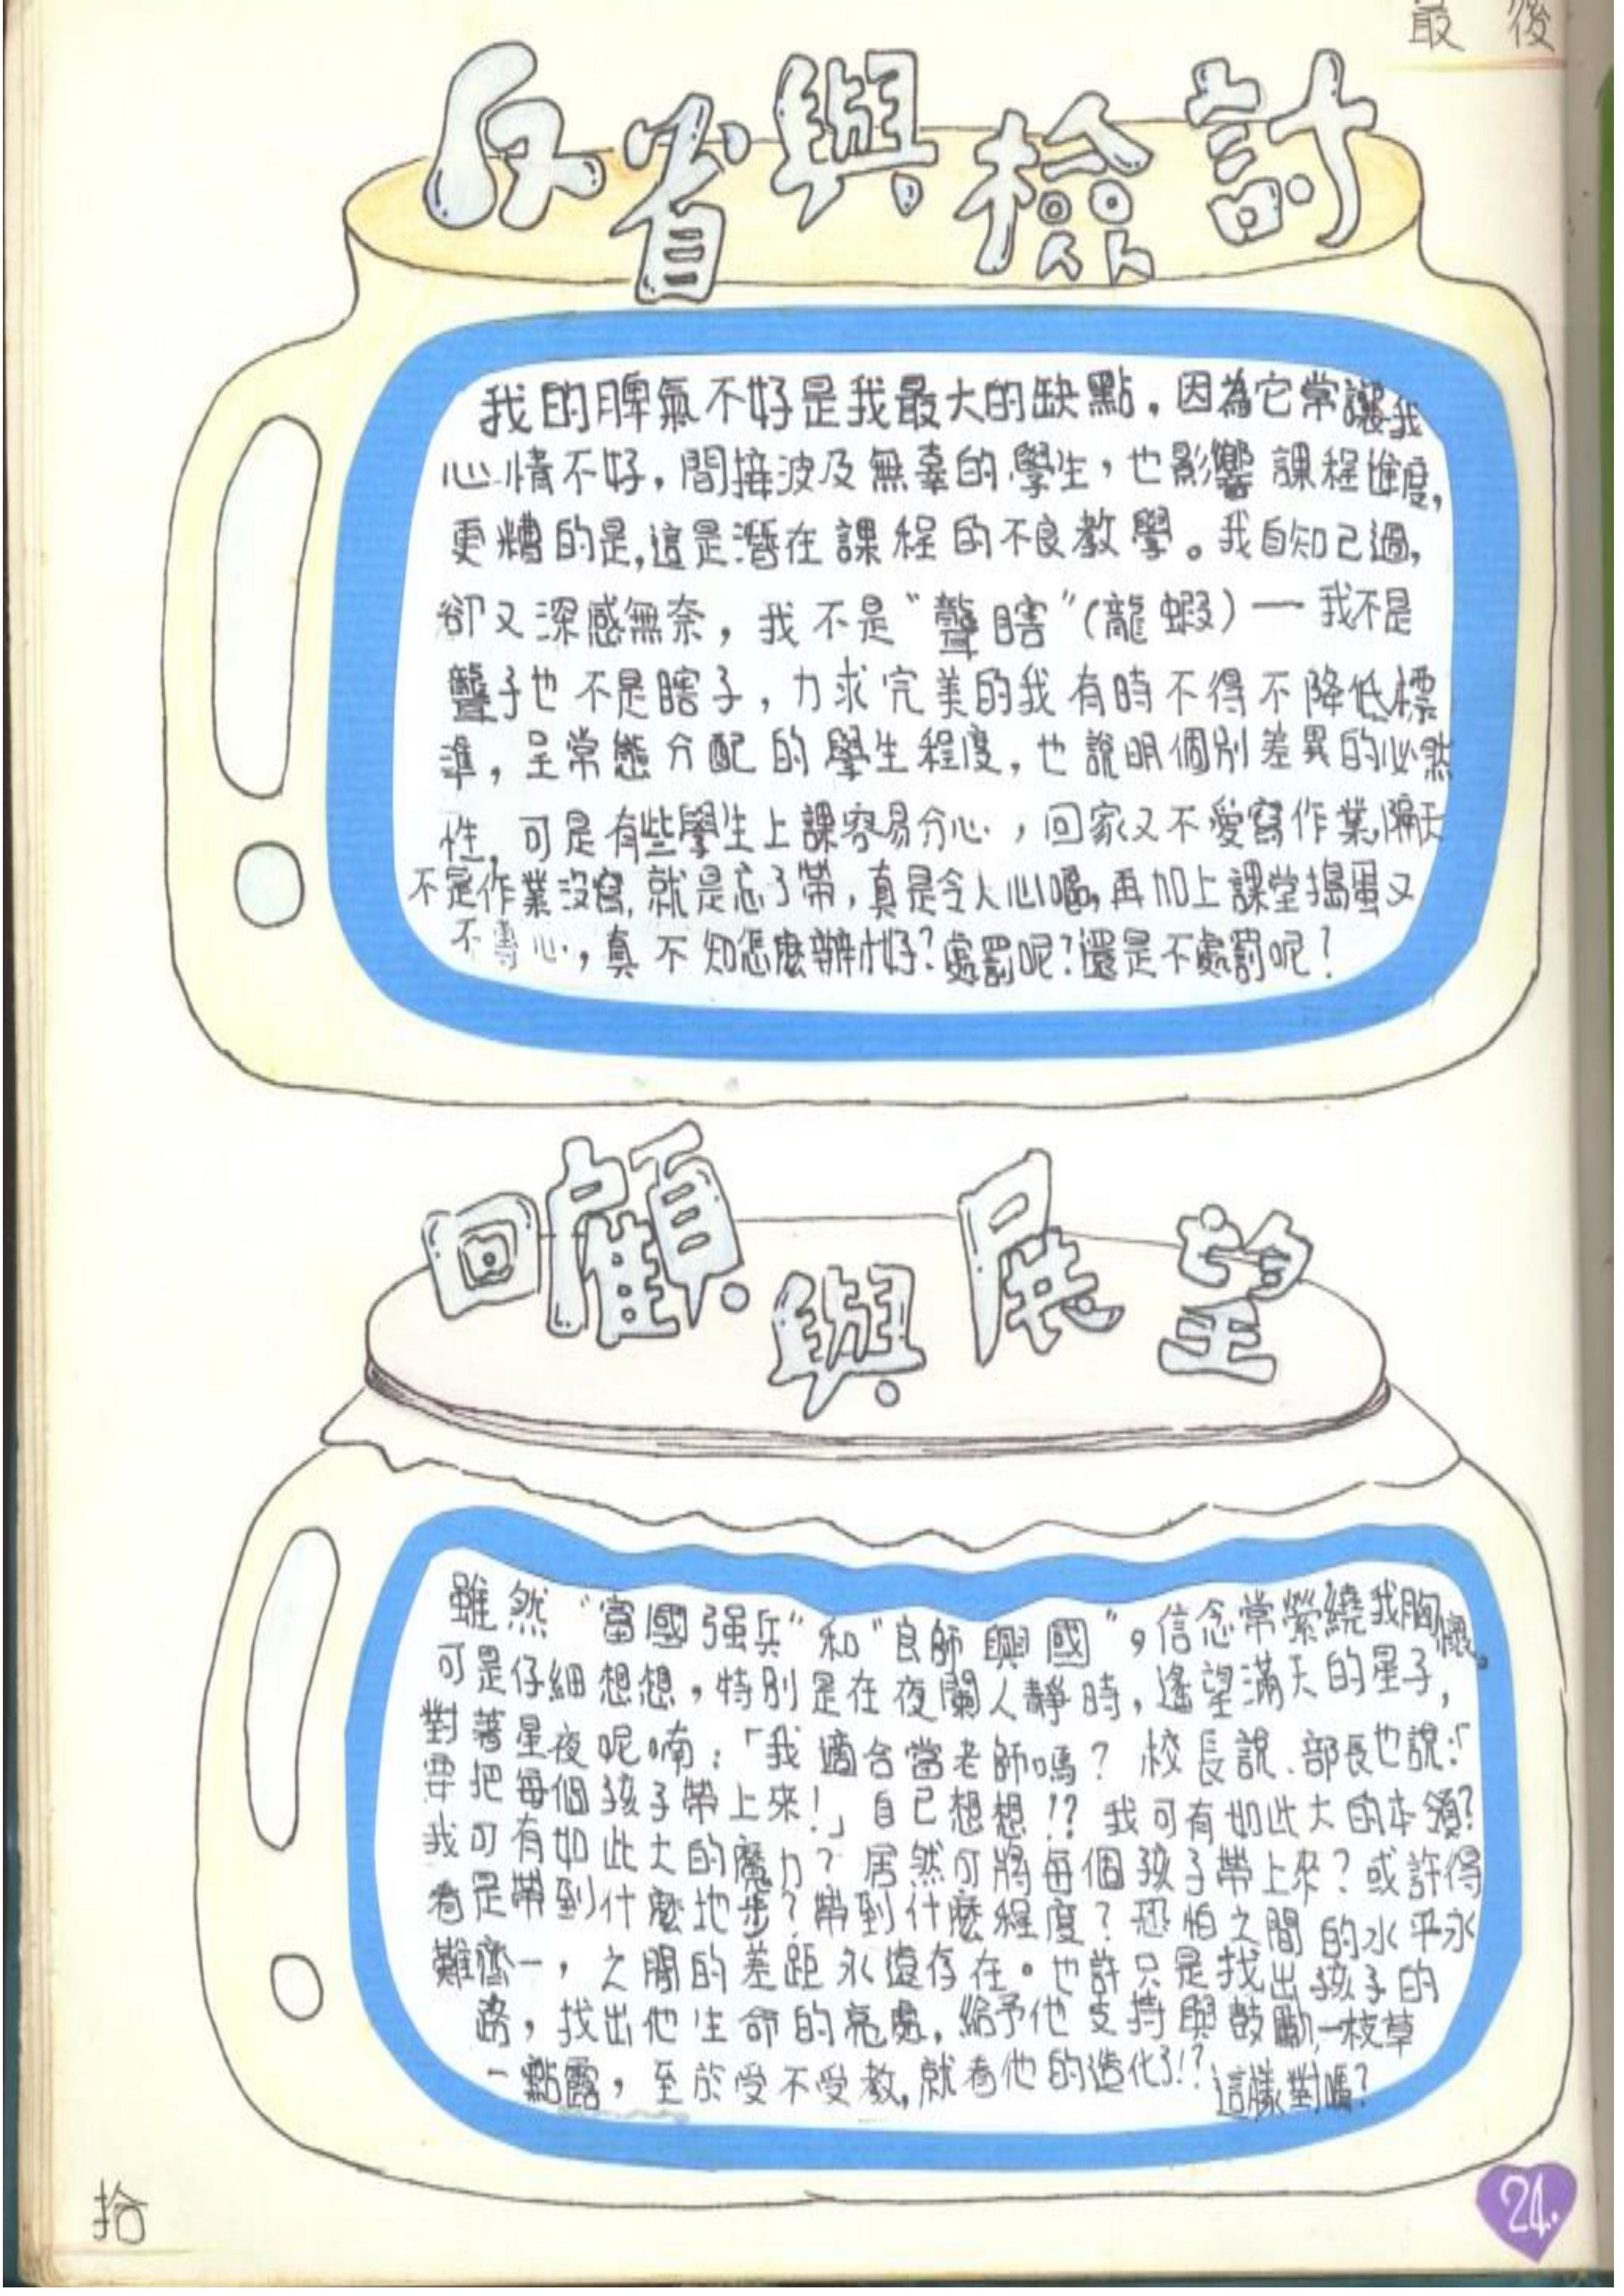 最後
反省與檢討
我的脾氣不好是我最大的缺點，因為它常讓我
心情不好，間接波及無辜的學生，也影響課程進度，
更糟的是，這是潛在課程的不良教學。我自知己過，
卻又深感無奈，我不是“聾瞎”(龍蝦)——我不是
聾子也不是瞎子，力求完美的我有時不得不降低標
準，呈常態分配的學生程度，也說明個別差異的必然
性，可是有些學生上課容易分心，回家又不愛寫作業，隔天
不是作業沒寫，就是忘了帶，真是令人心嘔，再加上課堂搗蛋又
不專心，真不知怎麼辦才好？處罰呢？還是不處罰呢？
回顧與展望
雖然“富國强兵”和“良師興國”，信念常縈繞我胸懷。
可是仔細想想，特別是在夜闌人靜時，遙望滿天的星子，
對著星夜呢喃：「我適合當老師嗎？校長說、部長也說：「
要把每個孩子帶上來！」自己想想！？我可有如此大的本領？
我可有如此大的魔力？居然可將每個孩子帶上來？或許得
看是帶到什麼地步？帶到什麼程度？恐怕之間的水平永
難齊一，之間的差距永遠存在。也許只是找出孩子的
路，找出他生命的亮處，給予他支持與鼓勵，一枝草
一點露，至於受不受教，就看他的造化了！？這樣對嗎？
拾
24.